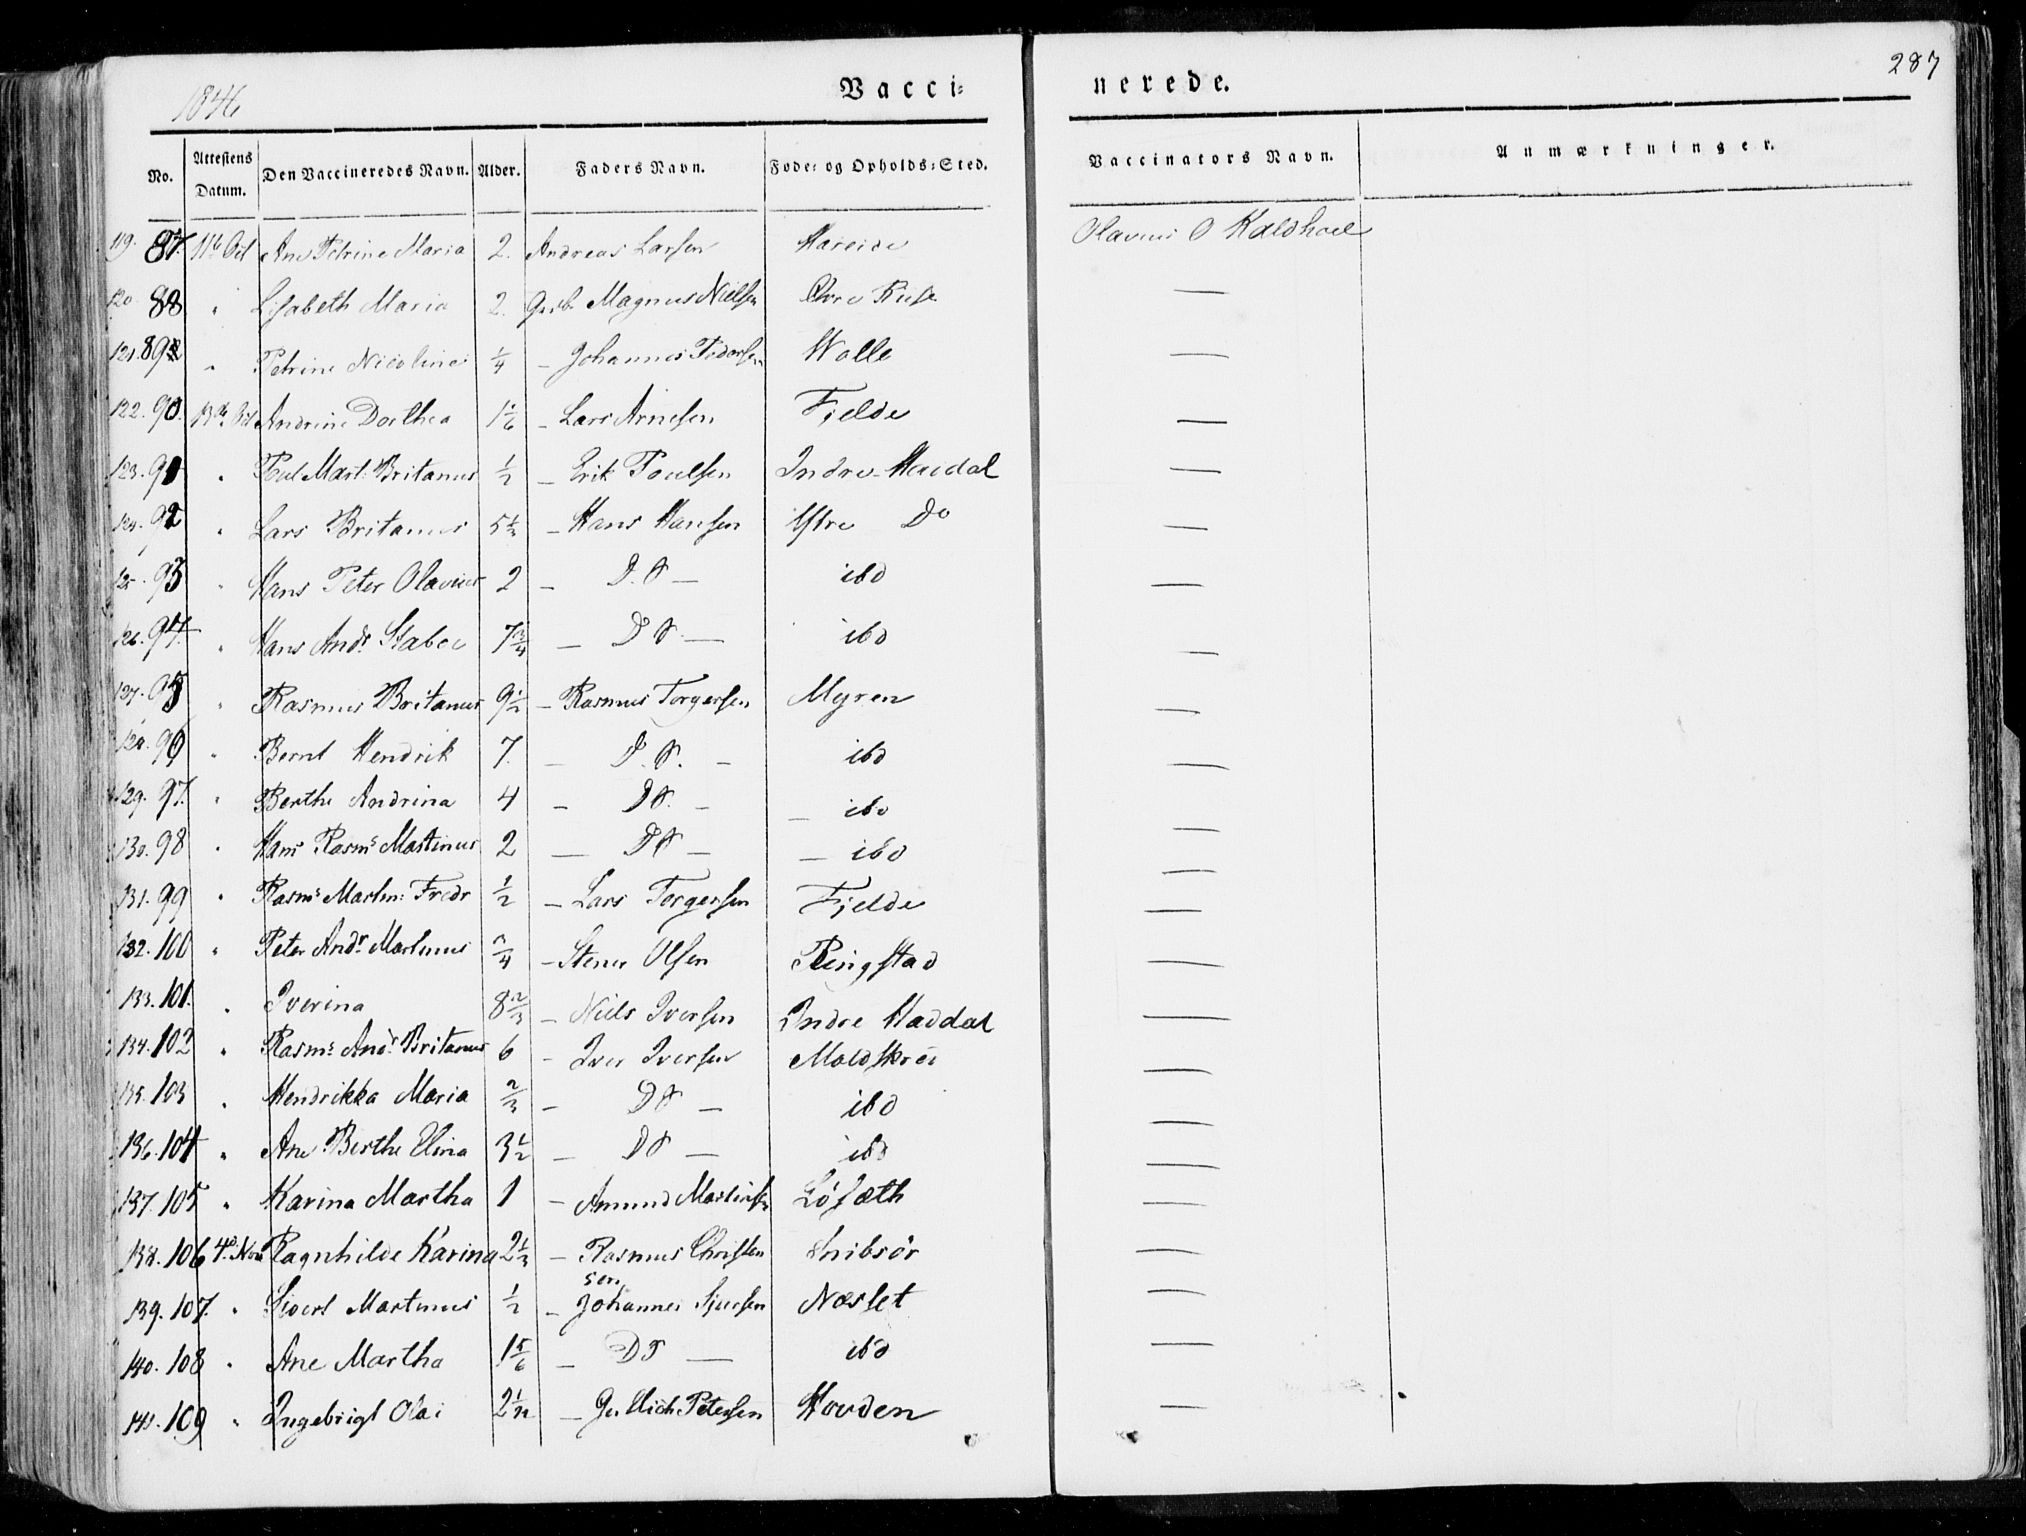 1846 Vaccinerede. 287
No. Attestens Datum. Den Vaccineredes Navn. Alder. Faders Navn. Føde- og Opholds-Sted. Vaccinators Navn. Anmærkninger.
119. 87. 11te Oct Ane Petrine Maria 2. Andreas Larsen Hareide Olavus O Kaldhoel
120. 88 " Lisabeth Maria 2. Magnus Nielsen Øvre Riise —
121. 89 " Petrine Nicoline ¼ — Johannes Pedersen Wolle —
122. 90. 13de Oct Andrine Dorthea 1 1/6 — Lars Arnesen Fjelde —
123. 91 " Poul Mart: Britanus ½ — Erik Poulsen Indre Haidal —
124. 92 " Lars Britanus 5½ — Hans Hansen Ystre Do —
125. 93 " Hans Peter Olavus 2 — D. S — ibd —
126. 94. " Hans Andr. Staboe 7¾ — D S — ibd —
127. 95 " Rasmus Britanus 9½ — Rasmus Torgersen Myren —
128. 96 " Bernt Hendrik 7. — D. S. — ibd —
129. 97. " Berthe Andrina 4 — D S. — — ibd —
130. 98 " Hans Rasms Martinus 2 — D S — — ibd —
131. 99 " Rasms Martin: Fredr ½ — Lars Torgersen Fjelde —
132. 100 " Peter Andr. Martinus ¾ — Stener Olsen Ringstad —
133. 101. " Iverina 8⅔ — Niels Iversen Indre Haddal —
134. 102 " Rasms Andr. Britanus 6 — Iver Iversen Moldskrei —
135. 103 " Hendrikka Maria ⅔ — D S — ibd —
136. 104 " Ane Berthe Elina 3½ — D S — ibd —
137. 105 " Karina Martha 1 — Amund Martinsen Løsæth —
138. 106 4de Nov Ragnhilde Karina 2⅓ — Rasmus Christensen Snibsør —
139. 107. " Sivert Martinus ½ — Johannes Sjursen Næsset —
140. 108 " Ane Martha 1 5/6 — D S — ibd —
141. 109 " Ingebrigt Olai 2½ — Petersen Hovden —